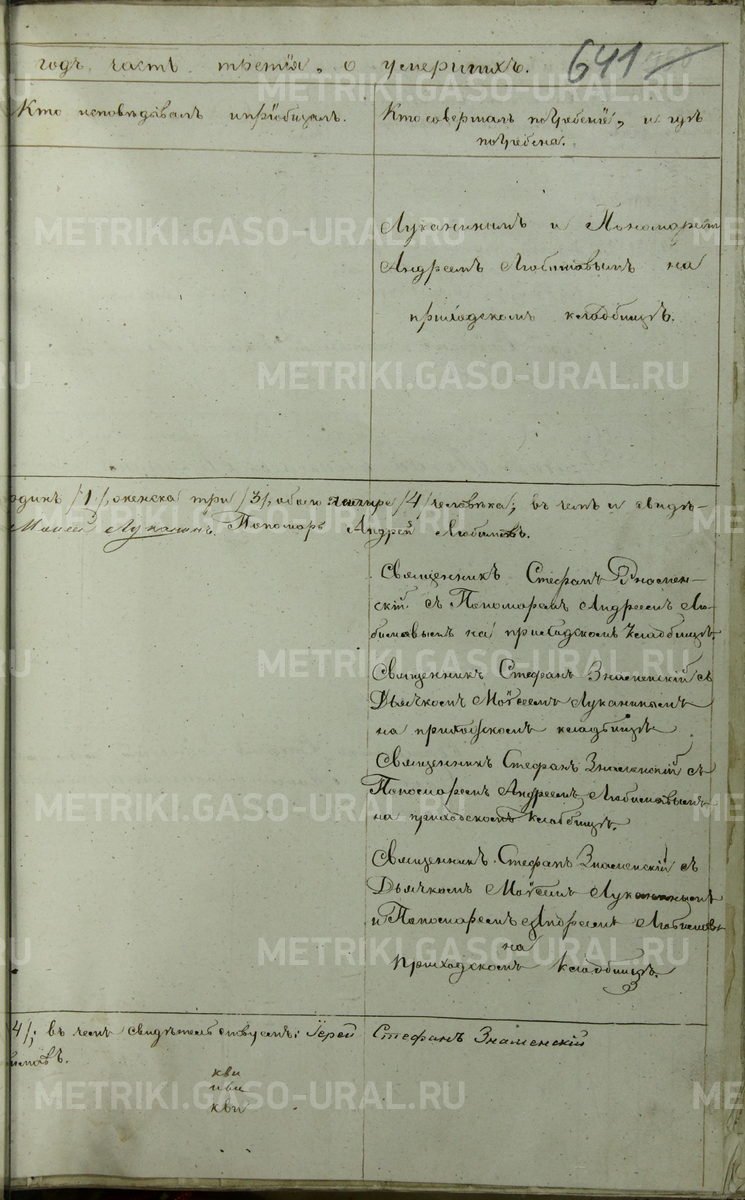 годъ, часть третія, о умершихъ. 641
Кто исповѣдывалъ и пріобщалъ.
Кто совершалъ погребеніе, и гдѣ
погребена.
Луканинымъ и Пономаремъ
Андреемъ Любимовымъ на
приходскомъ кладбищѣ.
одинъ /1/, женска три /3/, обоего четыре /4/ человѣка; въ чемъ и свидѣ-
Моисей Луканинъ. Пономарь Андрей Любимовъ.
Священникъ Стефанъ Знамен-
скій съ Пономаремъ Андреемъ Лю-
бимовымъ на приходскомъ кладбищѣ.
Священникъ Стефанъ Знаменскій съ
Дьячкомъ Моѵсеемъ Луканинымъ
на приходскомъ кладбищѣ.
Священникъ Стефанъ Знаменскій съ
Пономаремъ Андреемъ Любимовымъ
на приходскомъ кладбищѣ.
Священникъ Стефанъ Знаменскій съ
Дьячкомъ Моѵсеемъ Луканинымъ
и Пономаремъ Андреемъ Любимовы
на
Приходскомъ кладбищѣ.
4/; въ чемъ свидѣтельствуемъ: Іерей Стефанъ Знаменскій
имовъ.
METRIKI.GASO-URAL.RU